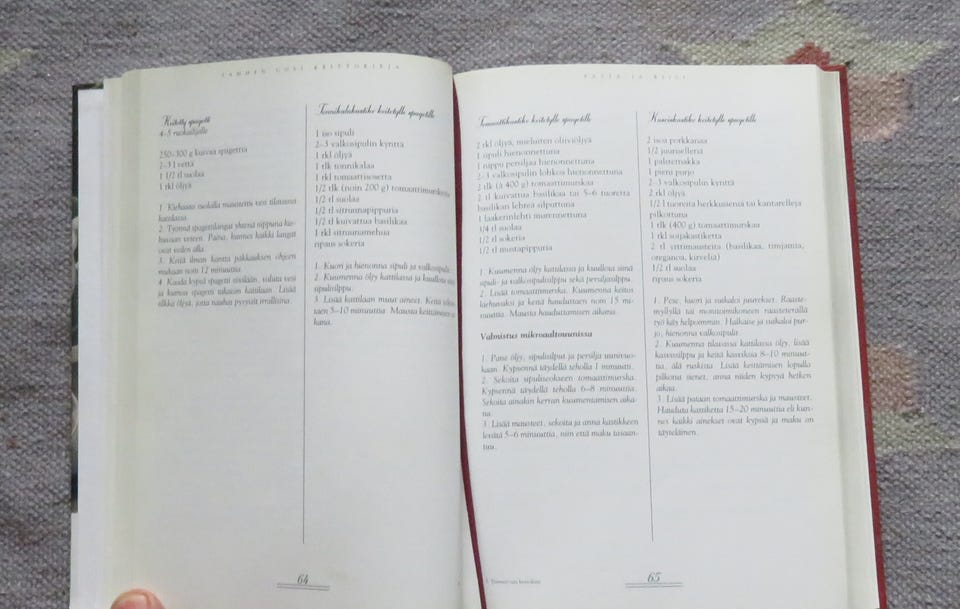 TAHDEN UUSI KEITTOKIRJA
Keitetty spagetti
4-5 ruokailijalle
250-300 g kuivaa spagettia
2-3 l vettä
1 1/2 tl suolaa
1 rkl öljyä
1. Kiehauta suolalla maustettu vesi tilavassa
kattilassa.
2. Työnnä spagettilangat yhtenä nippuna kie-
huvaan veteen. Paina, kunnes kaikki langat
ovat veden alla.
3. Keitä ilman kantta pakkauksen ohjeen
mukaan noin 12 minuuttia.
4. Kaada kypsä spagetti siivilään, valuta vesi
ja kumoa spagetti takaisin kattilaan. Lisää
tilkka öljyä, jotta nauhat pysyvät irrallisina.
Tonnikalakastike keitetylle spagetille
1 iso sipuli
2-3 valkosipulin kynttä
1 rkl öljyä
1 tlk tonnikalaa
1 rkl tomaattisosetta
1/2 tlk (noin 200 g) tomaattimurskaa
1/2 tl suolaa
1/2 tl sitruunapippuria
1/2 tl kuivattua basilikaa
1 rkl sitruunamehua
ripaus sokeria
1. Kuori ja hienonna sipuli ja valkosipuli.
2. Kuumenna öljy kattilassa ja kuullota siinä
sipulisilppu.
3. Lisää kattilaan muut aineet. Keitä
taen 5-10 minuuttia. Mausta keittämisen aika-
kana.
64
PASTA JA RIISI
Tomaattikastike keitetylle spagetille
2 rkl öljyä, mieluiten oliiviöljyä
1 sipuli hienonnettuna
1 nippu persiljaa hienonnettuna
2-3 valkosipulin lohkoa hienonnettuna
2 tlk (à 400 g) tomaattimurskaa
2 tl kuivattua basilikaa tai 5-6 tuoretta
basilikan lehteä silputtuna
1 laakerinlehti murennettuna
1/4 tl suolaa
1/2 tl sokeria
1/2 tl mustapippuria
1. Kuumenna öljy kattilassa ja kuullota siinä
sipuli- ja valkosipulisilppu sekä persiljasilppu.
2. Lisää tomaattimurska. Kuumenna keitos
kiehuvaksi ja keitä hauduttaen noin 15 mi-
nuuttia. Mausta hauduttamisen aikana.
Valmistus mikroaaltouunissa
1. Pane öljy, sipulisilput ja persilja uunivuo-
kaan. Kypsennä täydellä teholla 1 minuutti.
2. Sekoita sipuliseokseen tomaattimurska.
Kypsennä täydellä teholla 6-8 minuuttia.
Sekoita ainakin kerran kuumentamisen aika-
na.
3. Lisää mausteet, sekoita ja anna kastikkeen
levätä 5-6 minuuttia, niin että maku tasaan-
tuu.
Kasviskastike keitetylle spagetille
2 isoa porkkanaa
1/2 juuriselleriä
1 palsternakka
1 pieni purjo
2-3 valkosipulin kynttä
2 rkl öljyä
1/2 l tuoreita herkkusieniä tai kantarelleja
pilkottuina
1 tlk (400 g) tomaattimurskaa
1 rkl soijakastiketta
2 tl yrttimausteita (basilikaa, timjamia,
oreganoa, kirveliä)
1/2 tl suolaa
ripaus sokeria
1. Pese, kuori ja raikaloi juurekset. Raaste-
myllyllä tai monitoimikoneen raasteterällä
työ käy helpoimmin. Halkaise ja suikaloi pur-
jo, hienonna valkosipuli.
2. Kuumenna tilavassa kattilassa öljy, lisää
kasvissilppu ja keitä kasviksia 8-10 minuut-
tia, älä ruskista. Lisää keittämisen lopulla
pilkotut sienet, anna niiden kypsyä hetken
aikaa.
3. Lisää pataan tomaattimurska ja mausteet.
Hauduta kastiketta 15-20 minuuttia eli kun-
nes kaikki ainekset ovat kypsiä ja maku on
täyteläinen.
65